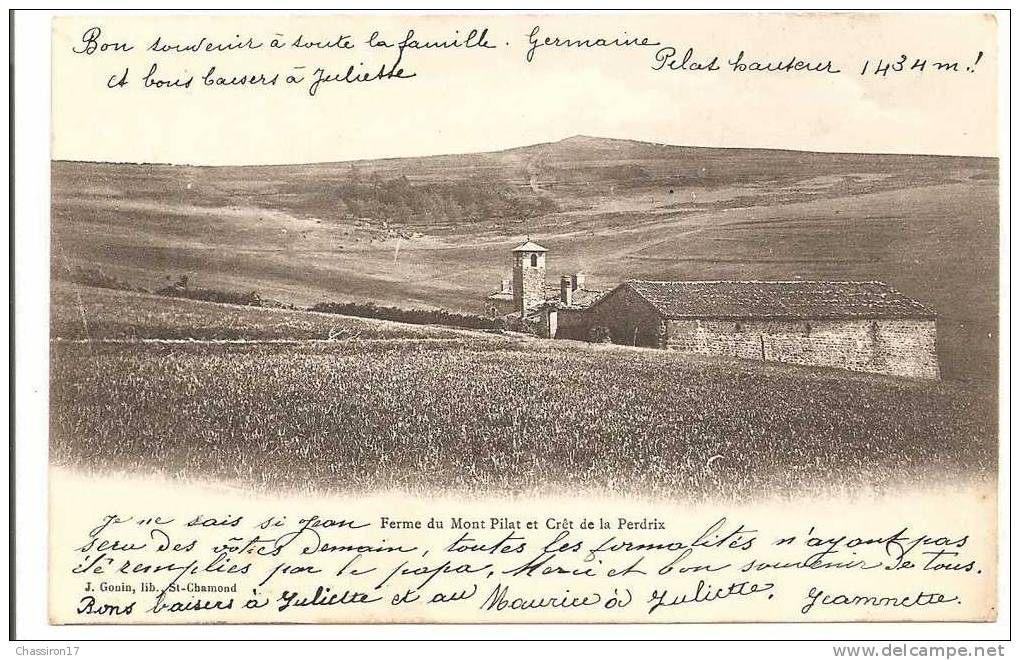 Bon souvenir à toute la famille. Germaine
Pilat hauteur 1434 m.!
et bons baisers à Juliette
Je ne sais si Jean
Ferme du Mont Pilat et Crêt de la Perdrix
sera des vôtres demain, toutes les formalités n'ayant pas
été remplies par le papa, Merci et bon souvenir de tous.
J. Gonin, lib., St-Chamond
Bons baisers à Juliette et au Maurice à Juliette. Jeannette.
-Chassiron17
www.delcampe.net